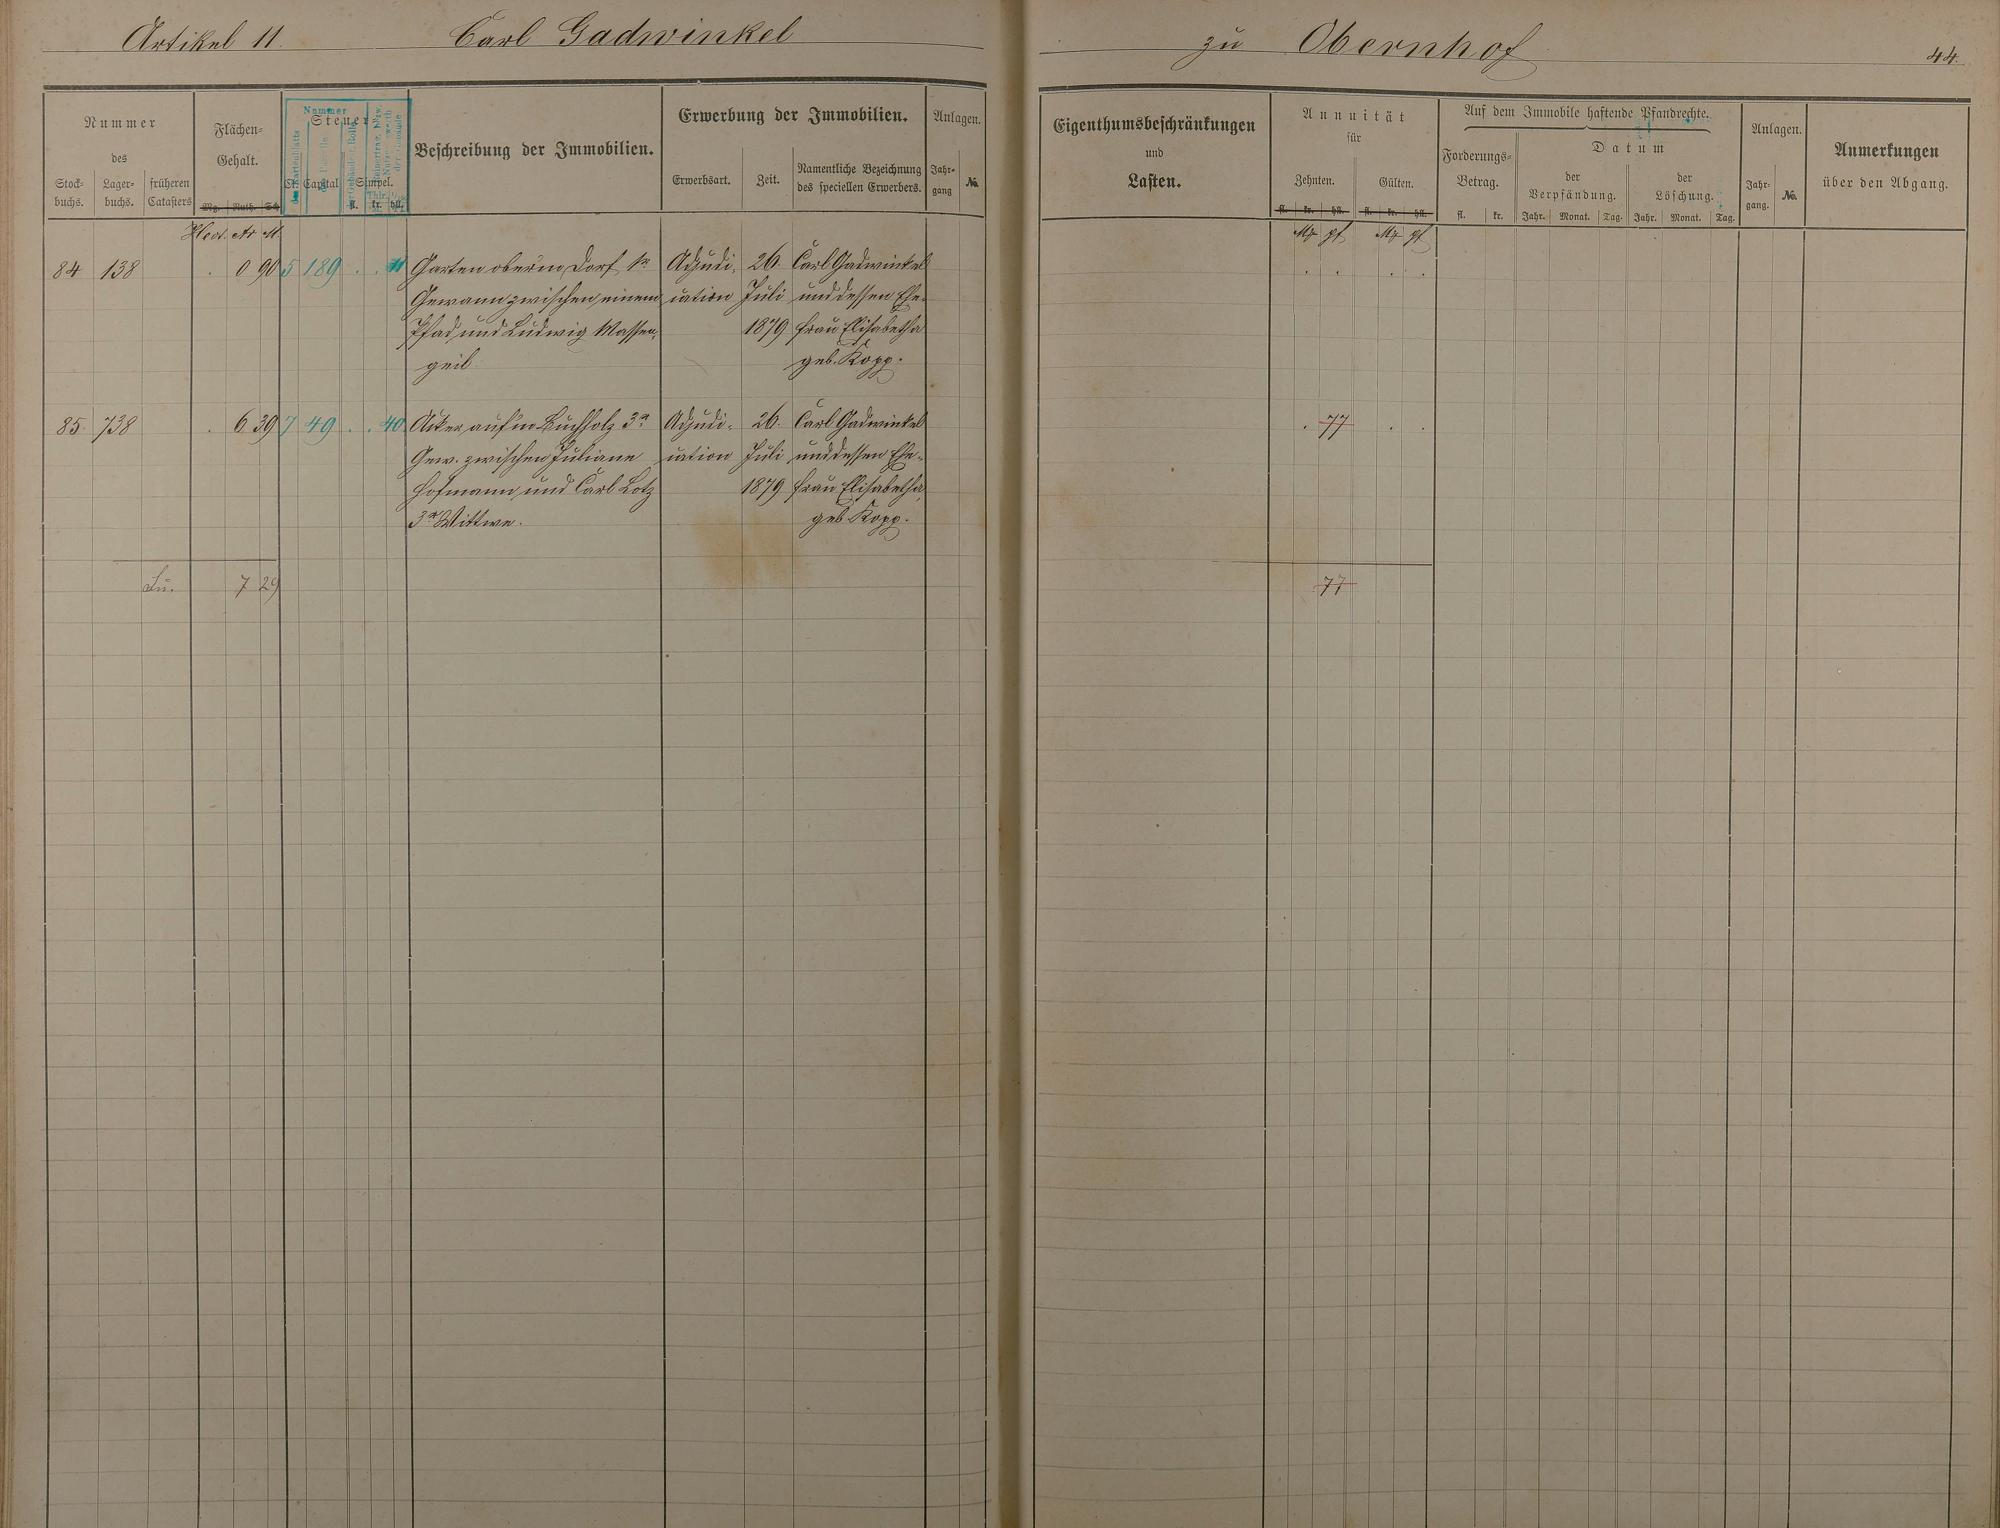 Artikel 11. Carl Gadwinkel zu Obernhof 44.
Nummer
des
Stock-
buchs.
Lager-
buchs.
früheren
Catasters
Flächen-
Gehalt.
Mg. Ruth. Sch
Nummer
Steuer
Cl. Capital Simpel.
fl. kr. hll.
Beschreibung der Immobilien.
Erwerbung der Immobilien.
Erwerbsart. Zeit.
Namentliche Bezeichnung
des speciellen Erwerbers.
Anlagen.
Jahr-
gang
No.
Eigenthumsbeschränkungen
und
Lasten.
Annuität
für
Zehnten. Gülten.
fl. kr. hll. fl. kr. hll.
Auf dem Immobile haftende Pfandrechte.
Forderungs-
Betrag.
fl. kr.
Datum
der
Verpfändung.
Jahr. Monat. Tag.
der
Löschung.
Jahr. Monat. Tag.
Anlagen.
Jahr-
gang.
No.
Anmerkungen
über den Abgang.
Hect. Ar M. Mk pf Mk pf
84 138 . 0 90 5 189 . . 11 Garten oberm Dorf 1r Adjudi- 26. Carl Gadwinkel
Gewann zwischen einem cation Juli und dessen Ehe-
Pfad und Ludwig Massen- 1879 frau Elisabetha
geil geb. Kopp.
85 738 . 6 39 7 49 . . 40 Acker auf'm Buchholz 3r Adjudi- 26. Carl Gadwinkel . 77 . .
Gew. zwischen Juliane cation Juli und dessen Ehe-
Hofmann und Carl Lotz 1879 frau Elisabetha
3r Wittwe. geb. Kopp.
Su. 7 29 77